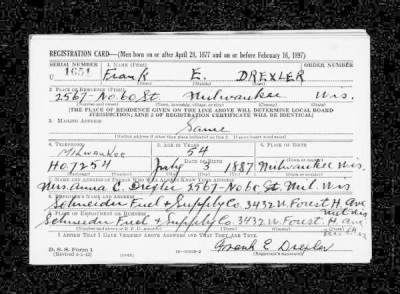 REGISTRATION CARD—(Men born on or after April 28, 1877 and on or before February 16, 1897)
SERIAL NUMBER 1. NAME (Print)
U 1651 Frank E. DREXLER
(First) (Middle) (Last)
2. PLACE OF RESIDENCE (Print)
2567-No. 60 St Milwaukee Wis.
(Number and street) (Town, township, village, or city) (County) (State)
[THE PLACE OF RESIDENCE GIVEN ON THE LINE ABOVE WILL DETERMINE LOCAL BOARD
JURISDICTION; LINE 2 OF REGISTRATION CERTIFICATE WILL BE IDENTICAL]
3. MAILING ADDRESS
Same
[Mailing address if other than place indicated on line 2. If same insert word same]
4. TELEPHONE 5. AGE IN YEARS 6. PLACE OF BIRTH
Milwaukee 54
HO 7254 July 3 1887 Milwaukee Wis.
7. NAME AND ADDRESS OF PERSON WHO WILL ALWAYS KNOW YOUR ADDRESS
Mrs. Anna C. Drexler 2567-No 60 St. Mil. Wis
8. EMPLOYER'S NAME AND ADDRESS
Schneider Fuel & Supply Co. 3432 W. Forest H. Ave
9. PLACE OF EMPLOYMENT OR BUSINESS Mil. Wis
Schneider Fuel & Supply Co. 3432 W. Forest H. Ave
I AFFIRM THAT I HAVE VERIFIED ABOVE ANSWERS AND THAT THEY ARE TRUE.
D. S. S. Form 1
(Revised 4-1-42) Frank E Drexler
(Registrant's signature)